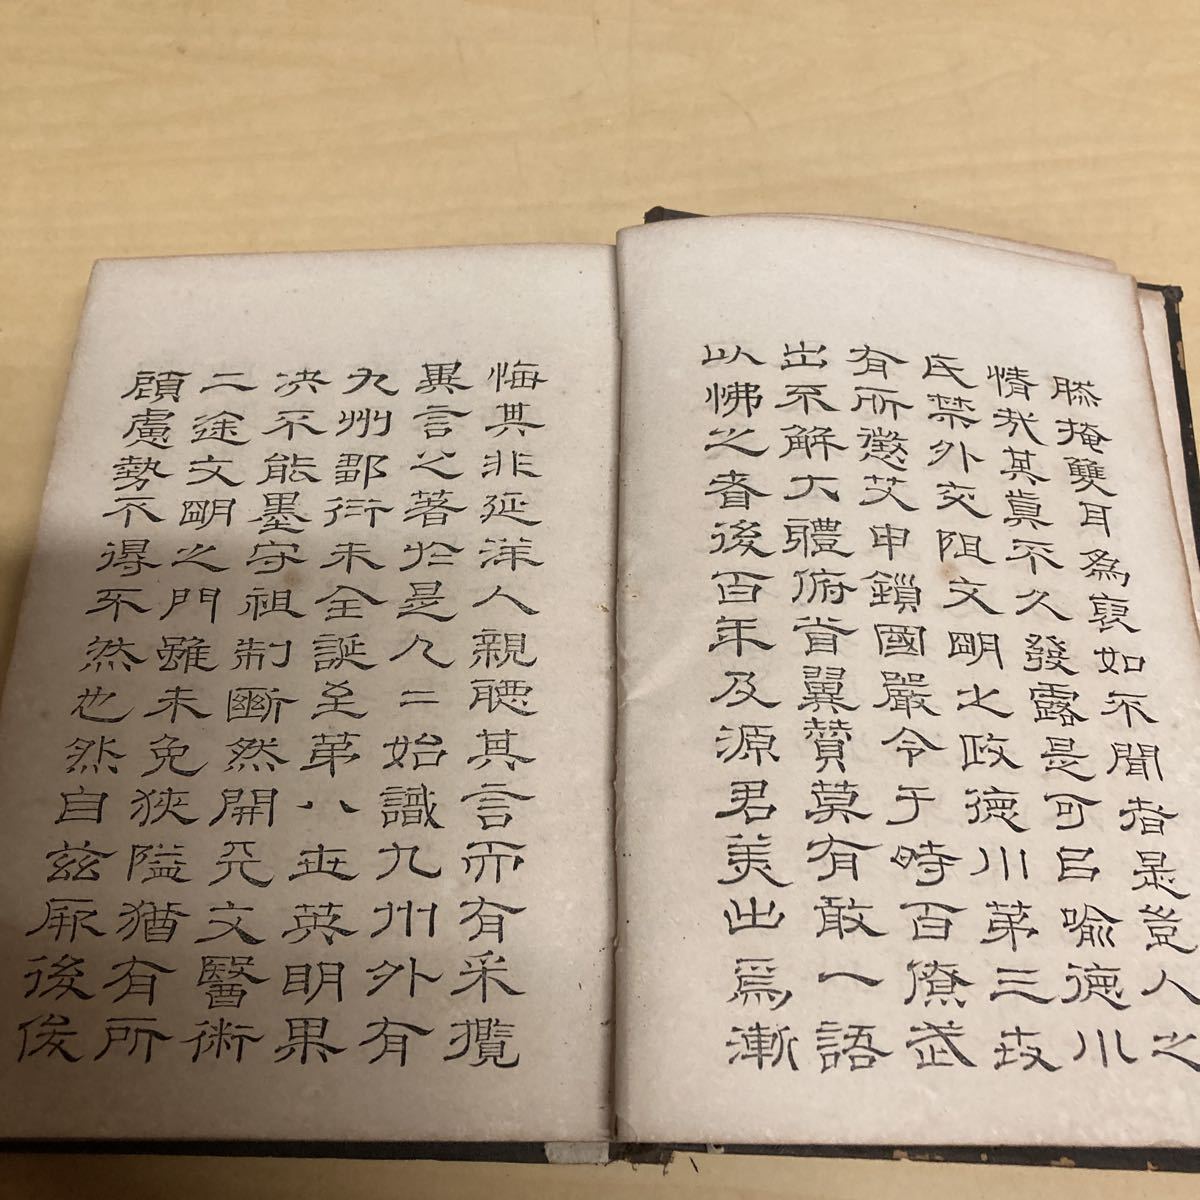 掩雙耳爲褎如不聞者是豈人之
情哉其眞不久發露是可㠯喻德川
氏禁外交阻文明之政德川第三世
有所懲艾申鎖國嚴令于時百僚武
出不解大體俯首翼贊莫有敢一語
以怫之者後百年及源君美出焉漸
悔其非延洋人親聽其言而有采攬
異言之著於是人二始識九州外有
九州鄒衍未全誕至第八世英明果
决不能墨守祖制斷然開天文醫術
二途文明之門雖未免狹隘猶有所
顧慮勢不得不然也然自玆厥後俊